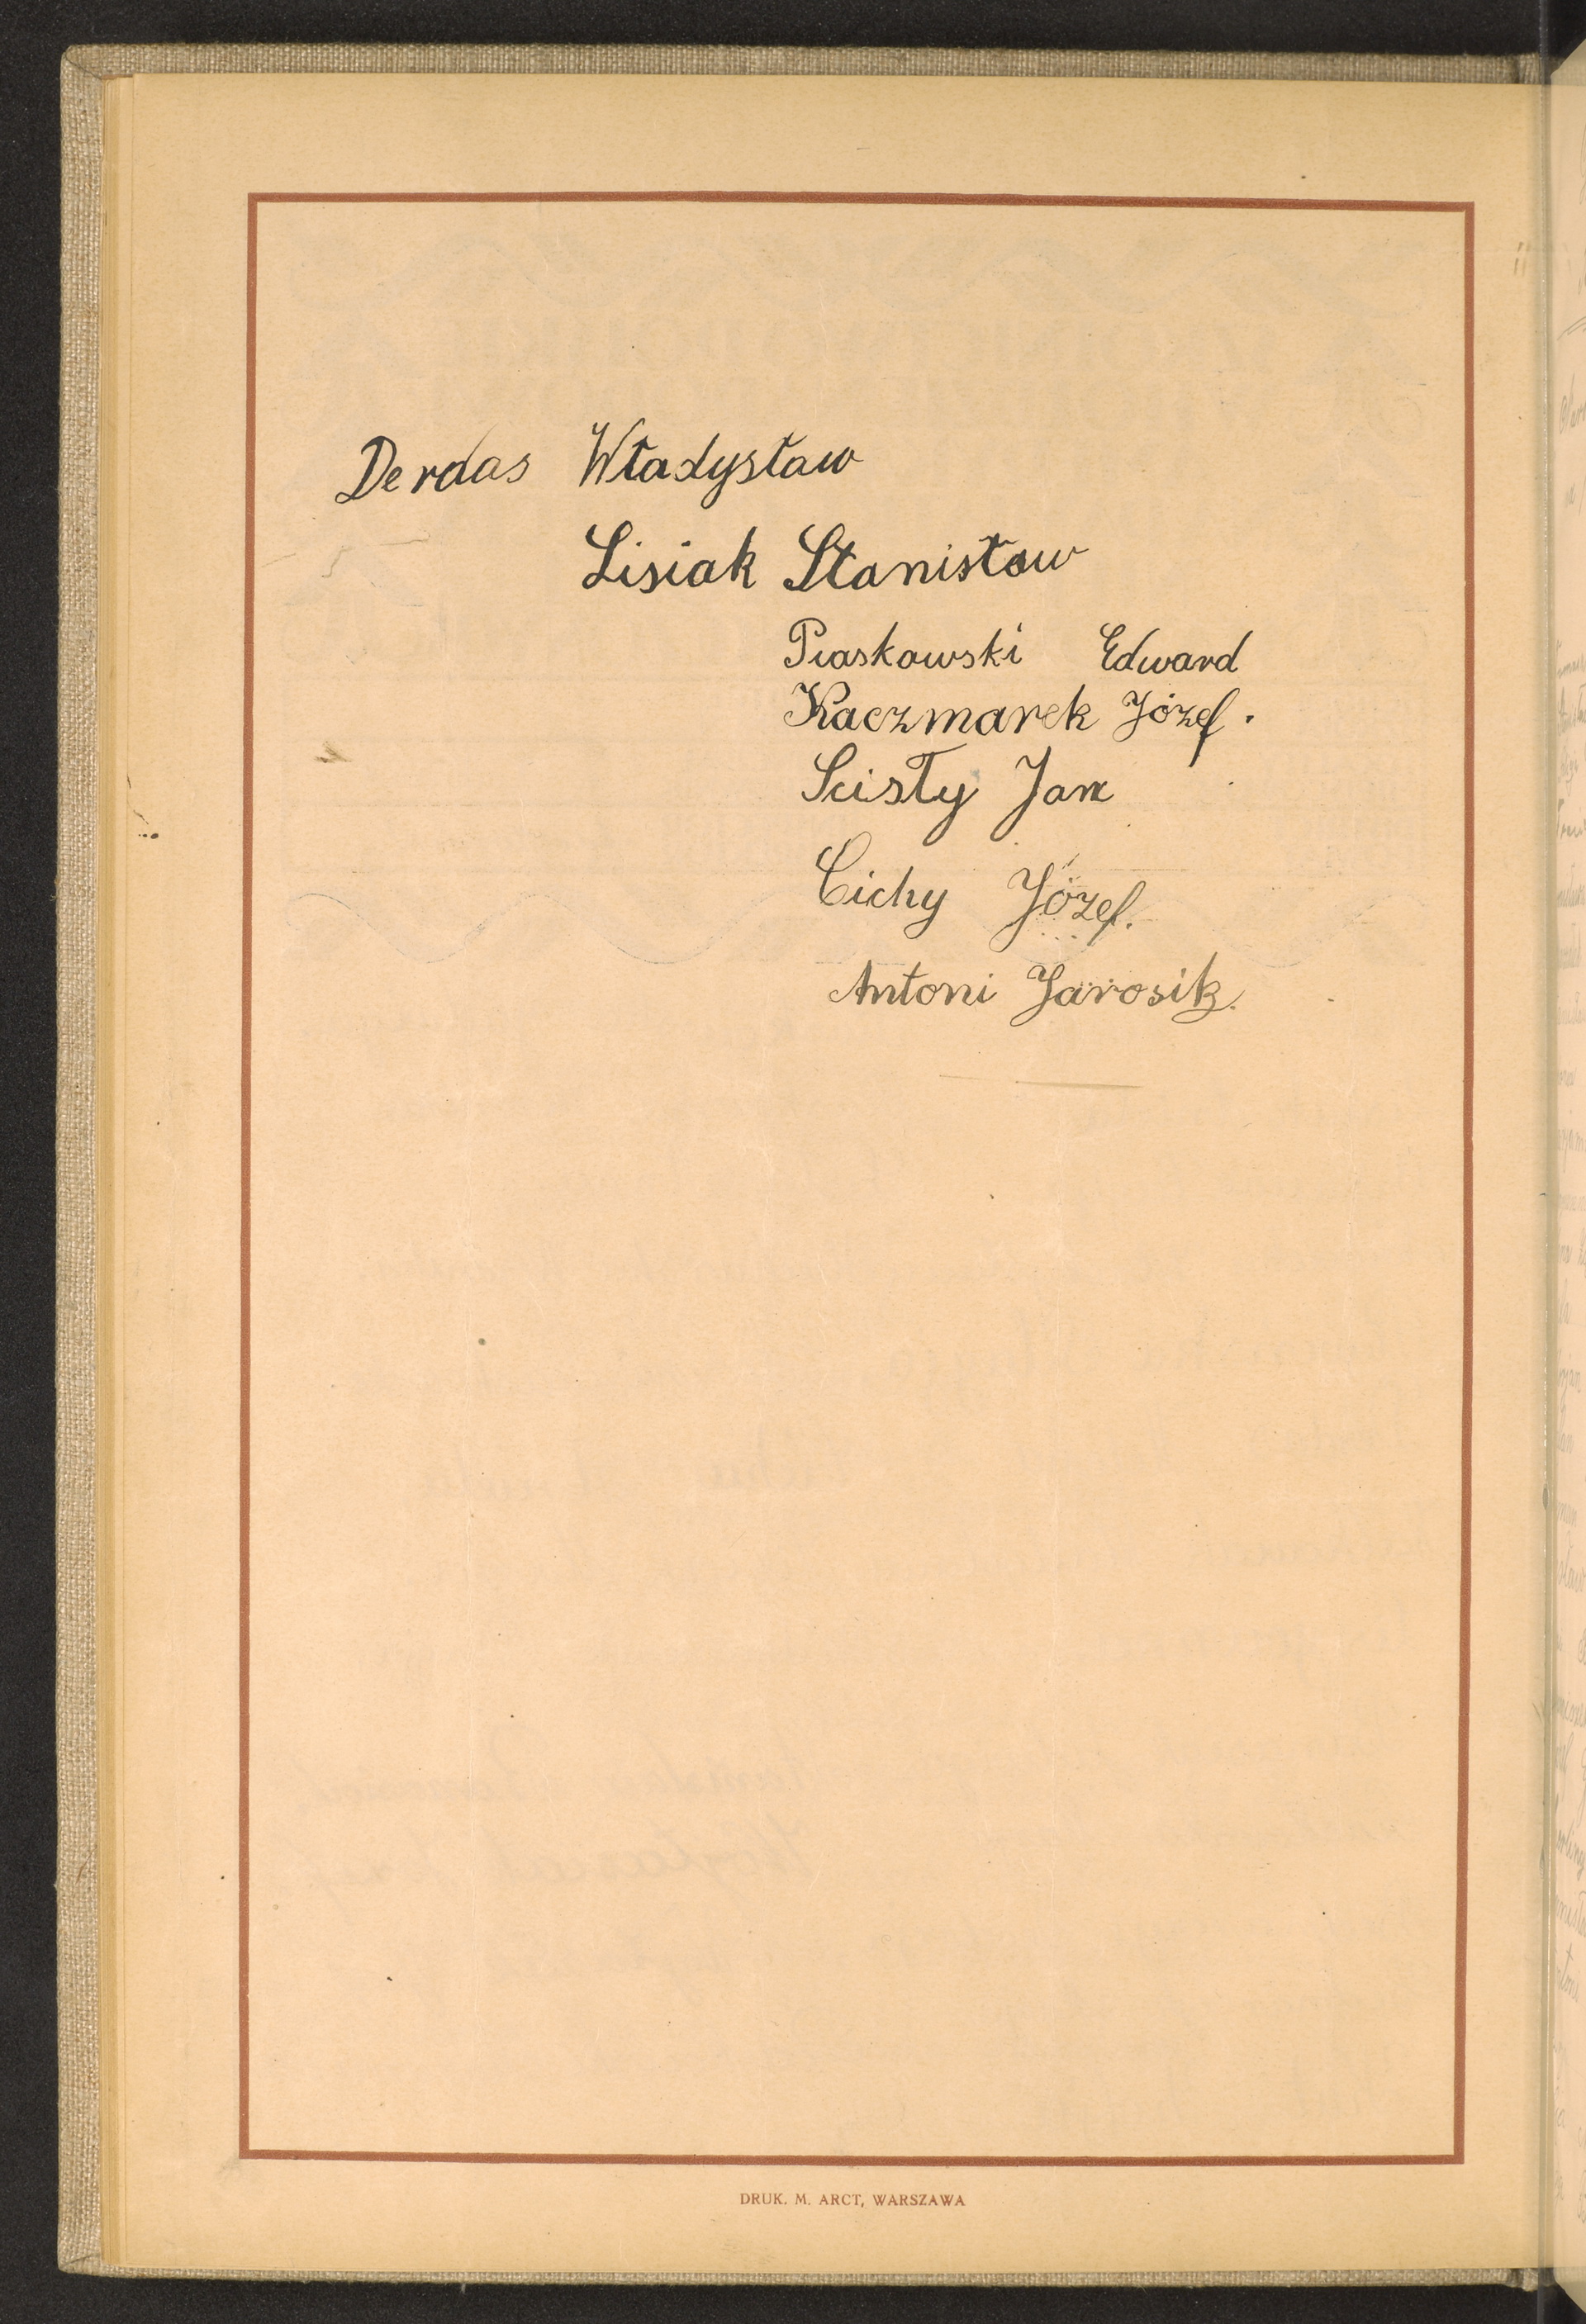 Derdas Władysław
Lisiak Stanisław
Piaskowski Edward
Kaczmarek Józef.
Scisły Jan
Cichy Józef.
Antoni Jarosik.
DRUK. M. ARCT, WARSZAWA